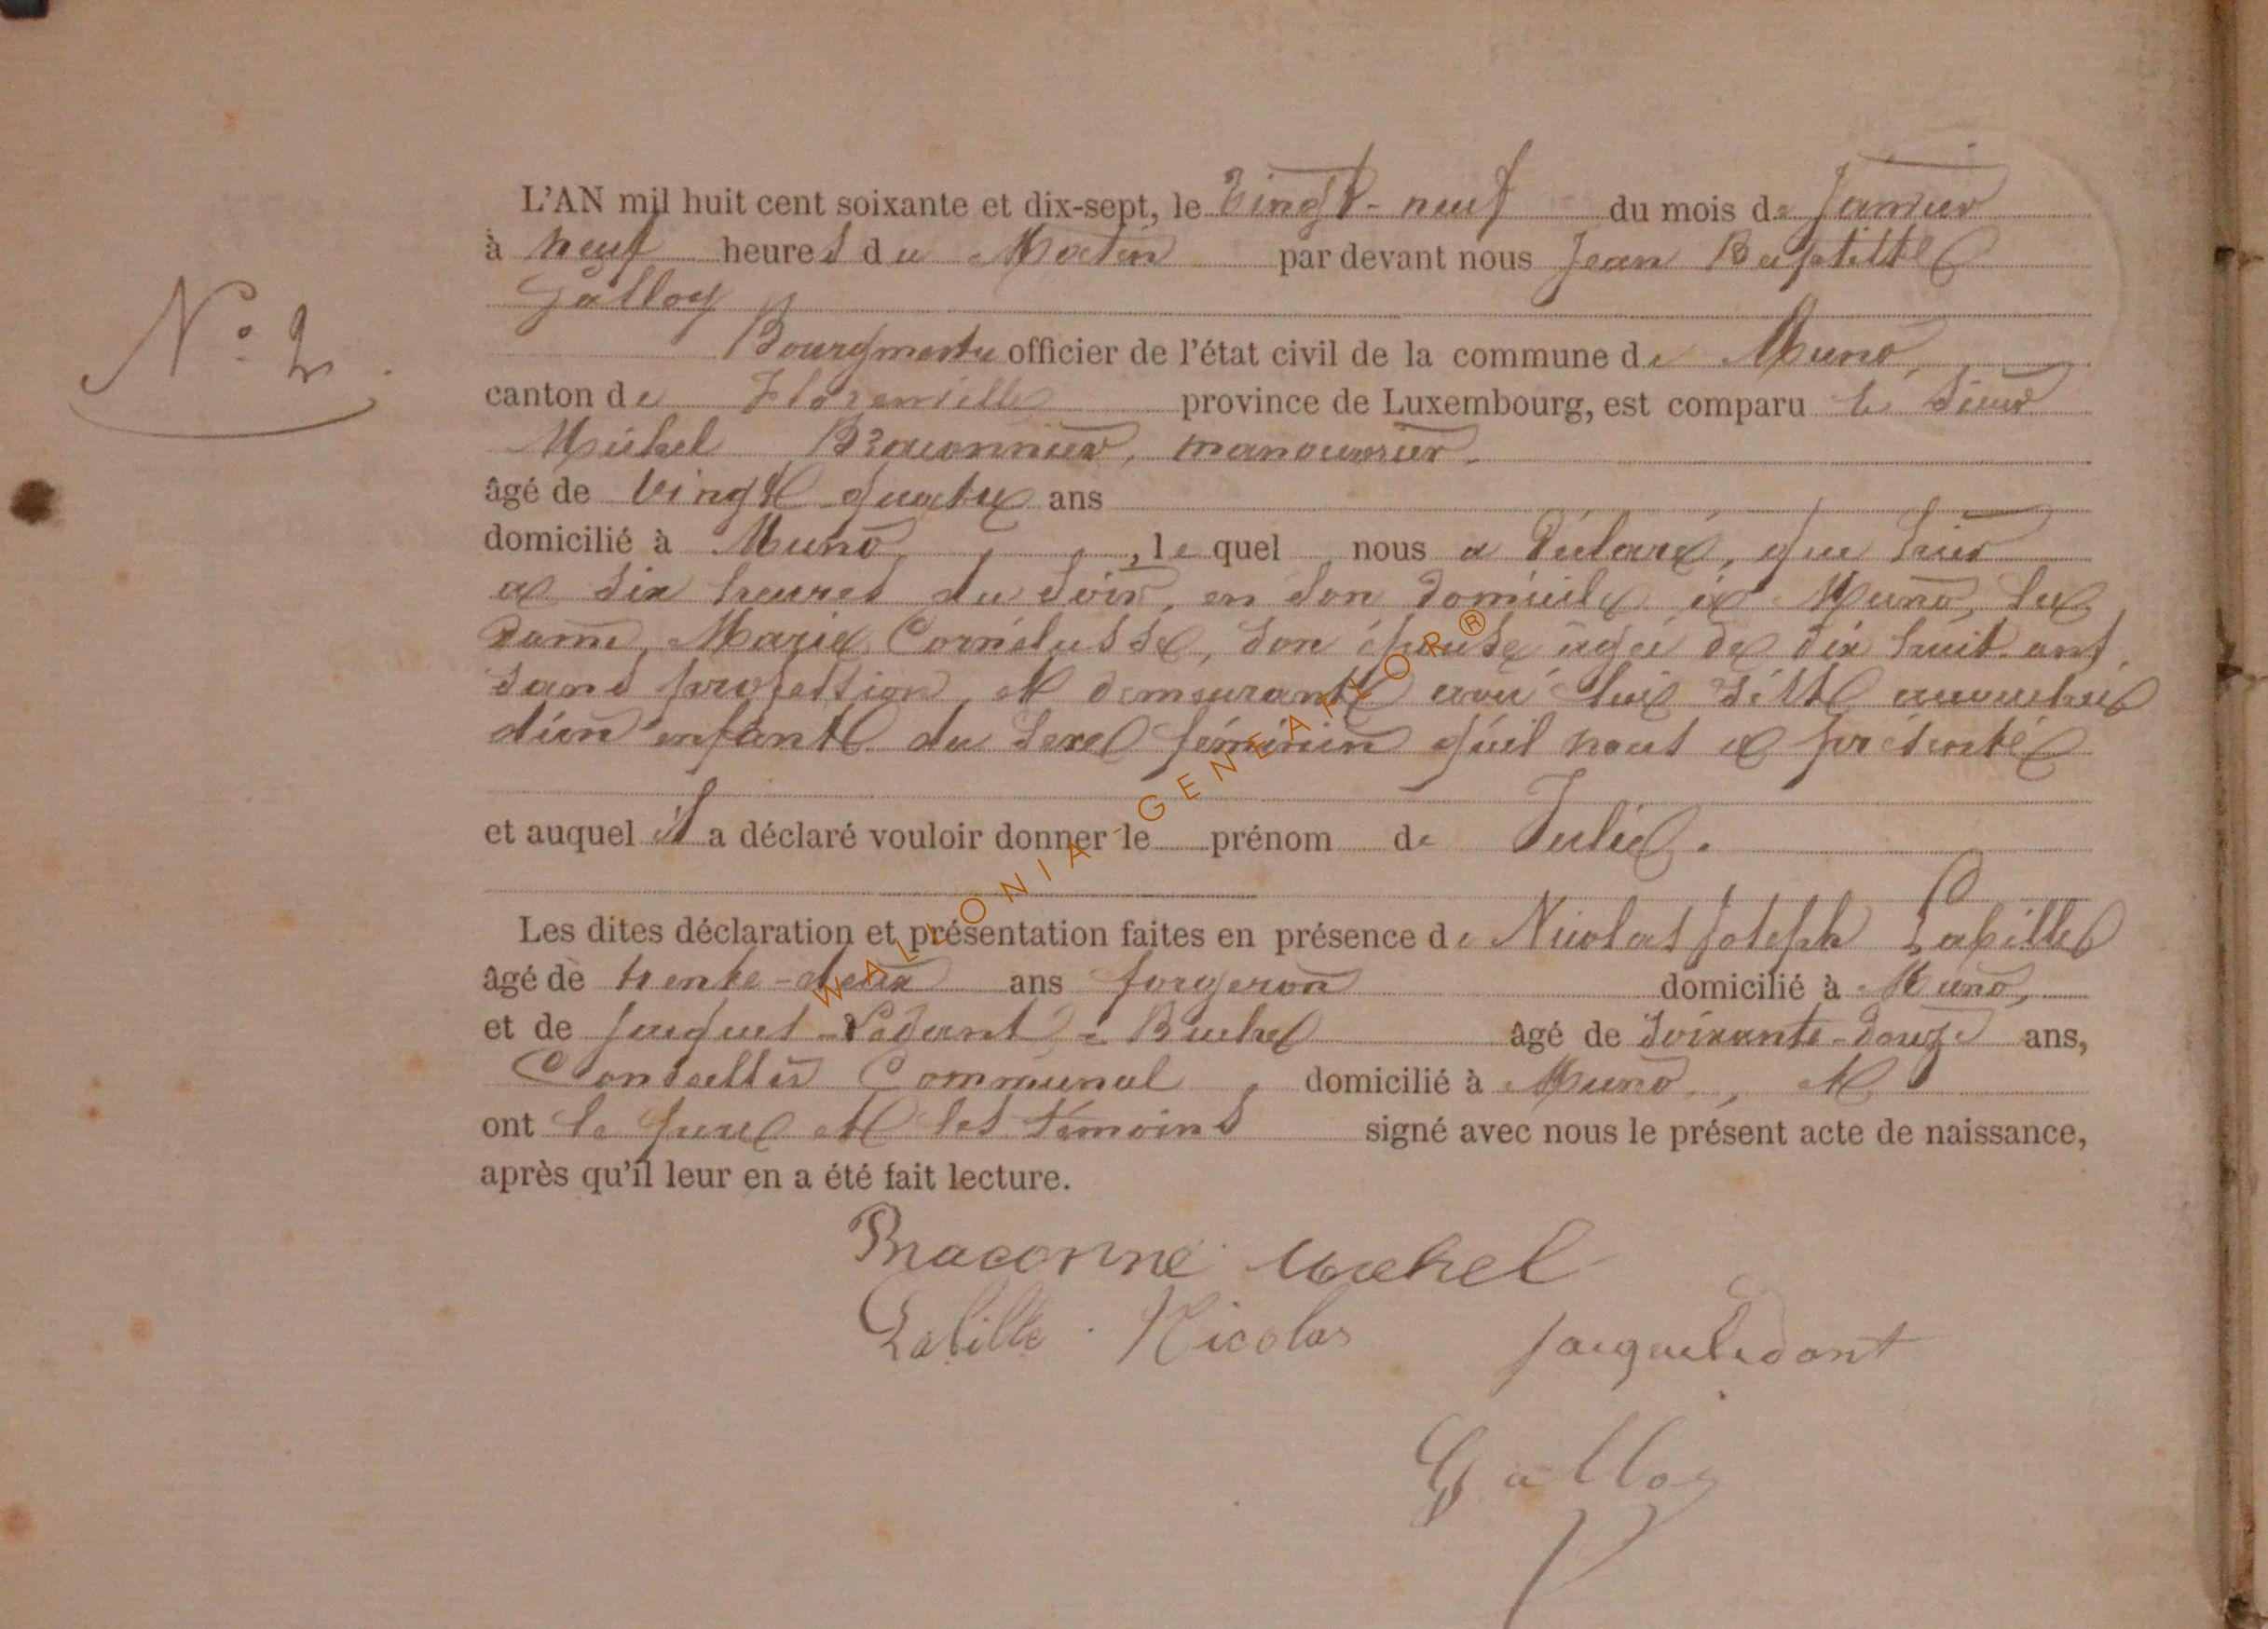 N° 2.
L'AN mil huit cent soixante et dix-sept, le vingt-neuf du mois de Janvier
à neuf heures du Matin par devant nous Jean Baptiste
Galloy
Bourgmestre officier de l'état civil de la commune de Muno,
canton de Florenville province de Luxembourg, est comparu le Sieur
Michel Braconnier, manouvrier.
âgé de vingt quatre ans
domicilié à Muno, , le quel nous a déclaré, que hier
à dix heures du soir, en son domicile à Muno, la
Dame, Marie Cornélusse, son épouse âgée de dix huit ans,
sans profession, et demeurant avec lui s'est accouchée
d'un enfant du sexe féminin qu'il nous a présenté
et auquel il a déclaré vouloir donner le prénom de Julie.
Les dites déclaration et présentation faites en présence de Nicolas Joseph Labille
âgé de trente-deux ans forgeron domicilié à Muno,
et de Jacques Ledant = Buchel âgé de soixante-douze ans,
Conseiller Communal, domicilié à Muno, et
ont le père et les témoins signé avec nous le présent acte de naissance,
après qu'il leur en a été fait lecture.
Braconne Michel
Labille Nicolas Jacque Ledant
Galloy
WALLONIA-GENEAFLOR®